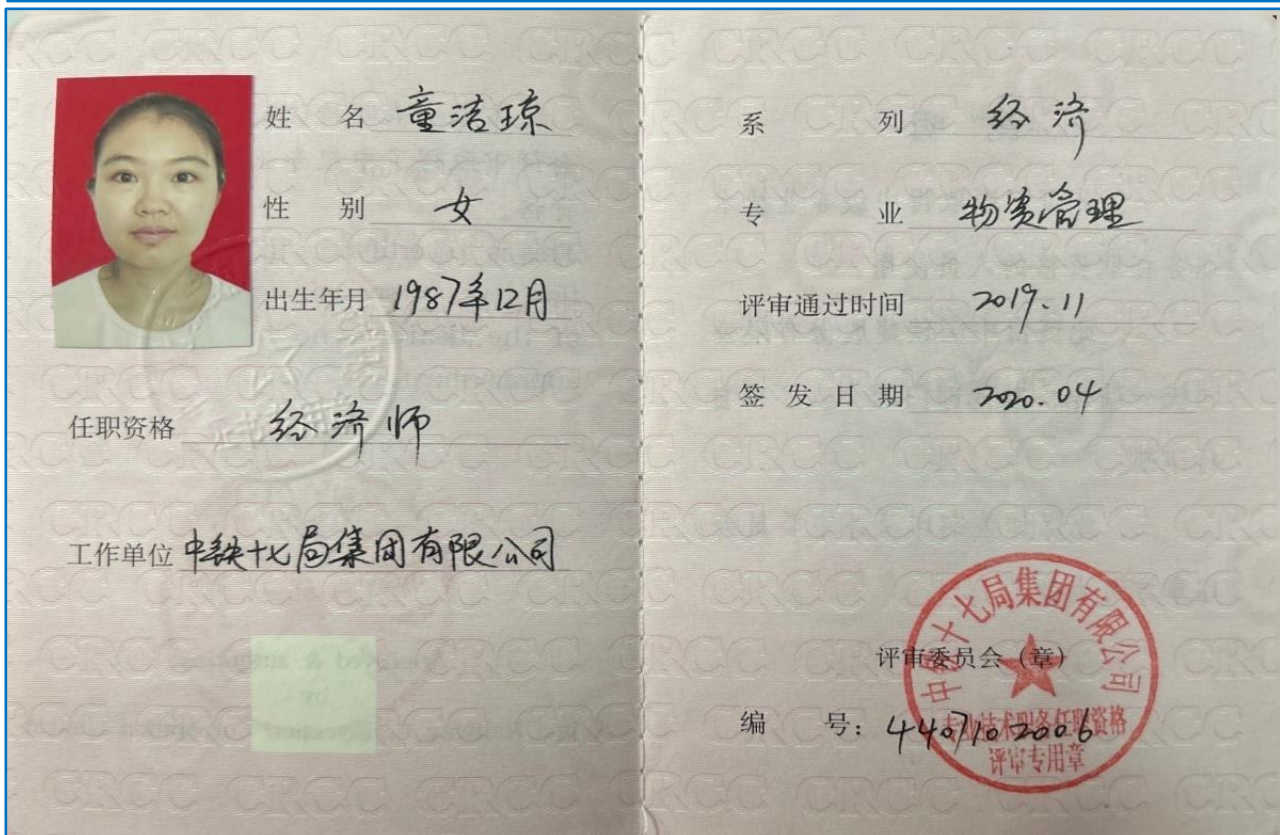 姓 名 童洁琼
性 别 女
出生年月 1987年12月
任职资格 经济师
工作单位 中铁十七局集团有限公司
系 列 经济
专 业 物资管理
评审通过时间 2019.11
签发日期 2020.04
评审委员会（章）
编 号：4407102006
中铁十七局集团有限公司
专业技术职务任职资格
评审专用章
CRCC